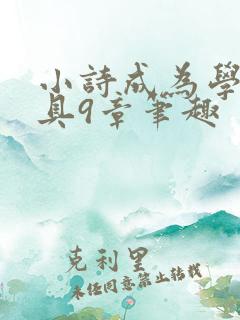 小詩成為學
具9章筆趣
克利里
未经同意禁止转载